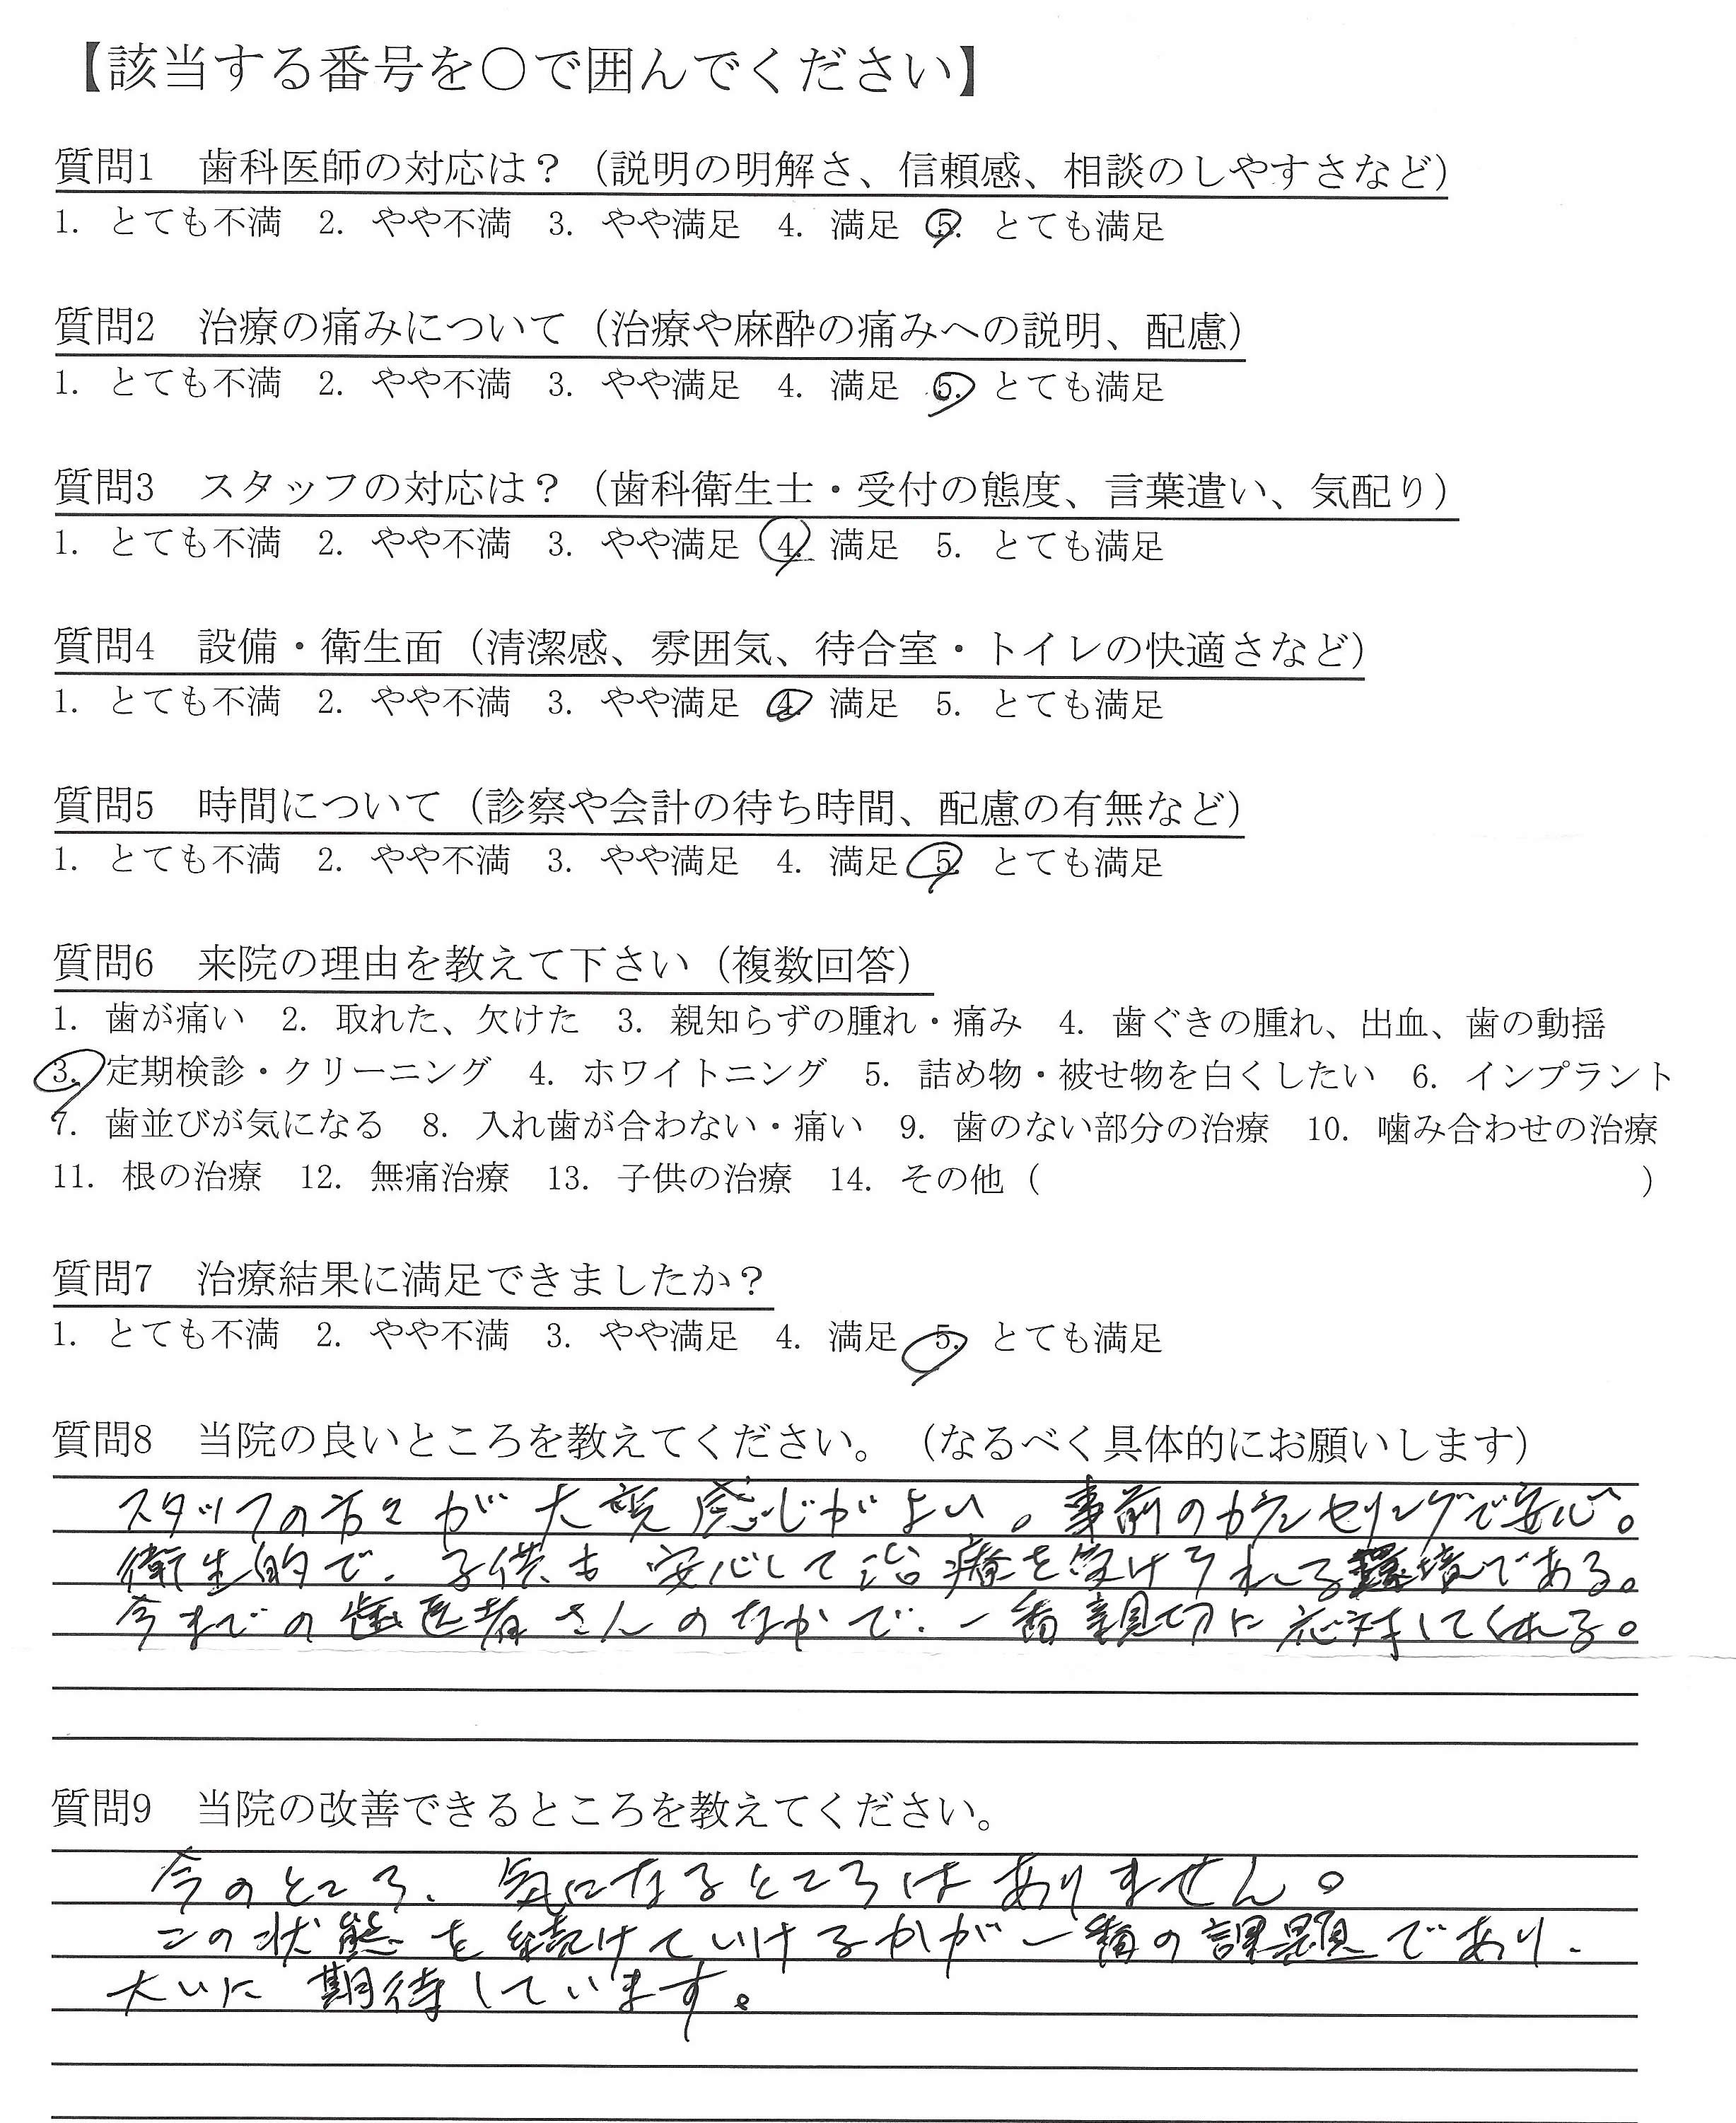 【該当する番号を○で囲んでください】
質問1　歯科医師の対応は？（説明の明解さ、信頼感、相談のしやすさなど）
1. とても不満　2. やや不満　3. やや満足　4. 満足　5. とても満足
質問2　治療の痛みについて（治療や麻酔の痛みへの説明、配慮）
1. とても不満　2. やや不満　3. やや満足　4. 満足　5. とても満足
質問3　スタッフの対応は？（歯科衛生士・受付の態度、言葉遣い、気配り）
1. とても不満　2. やや不満　3. やや満足　4. 満足　5. とても満足
質問4　設備・衛生面（清潔感、雰囲気、待合室・トイレの快適さなど）
1. とても不満　2. やや不満　3. やや満足　4. 満足　5. とても満足
質問5　時間について（診察や会計の待ち時間、配慮の有無など）
1. とても不満　2. やや不満　3. やや満足　4. 満足　5. とても満足
質問6　来院の理由を教えて下さい（複数回答）
1. 歯が痛い　2. 取れた、欠けた　3. 親知らずの腫れ・痛み　4. 歯ぐきの腫れ、出血、歯の動揺
3. 定期検診・クリーニング　4. ホワイトニング　5. 詰め物・被せ物を白くしたい　6. インプラント
7. 歯並びが気になる　8. 入れ歯が合わない・痛い　9. 歯のない部分の治療　10. 噛み合わせの治療
11. 根の治療　12. 無痛治療　13. 子供の治療　14. その他（　　　　　　　　　　）
質問7　治療結果に満足できましたか？
1. とても不満　2. やや不満　3. やや満足　4. 満足　5. とても満足
質問8　当院の良いところを教えてください。（なるべく具体的にお願いします）
スタッフの方々が大変感じがよい。事前のカウンセリングで安心。
衛生的で、子供も安心して治療を受けられる環境である。
今までの歯医者さんのなかで、一番親切に応対してくれる。
質問9　当院の改善できるところを教えてください。
今のところ、気になるところはありません。
この状態を続けていけるかが一番の課題であり、
大いに期待しています。